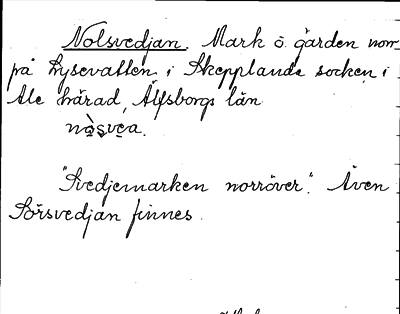 Nolsvedjan. Mark ö. gården norr
på Lysevatten i Skepplanda socken i
Ale härad, Älfsborgs län
"Svedjemarken norröver". Även
Sörsvedjan finnes.